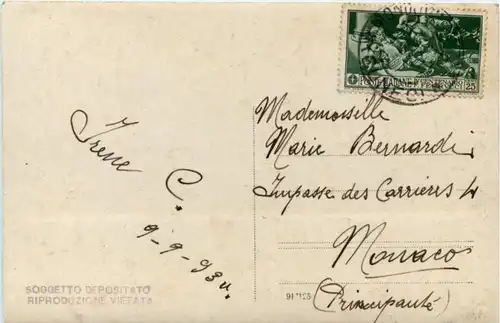 POSTE ITALIANE
25
Mademoiselle
Marie Bernardi
Impasse des Carrières
Monaco
(Principauté)
Irene C.
9-9-930.
SOGGETTO DEPOSITATO
RIPRODUZIONE VIETATA